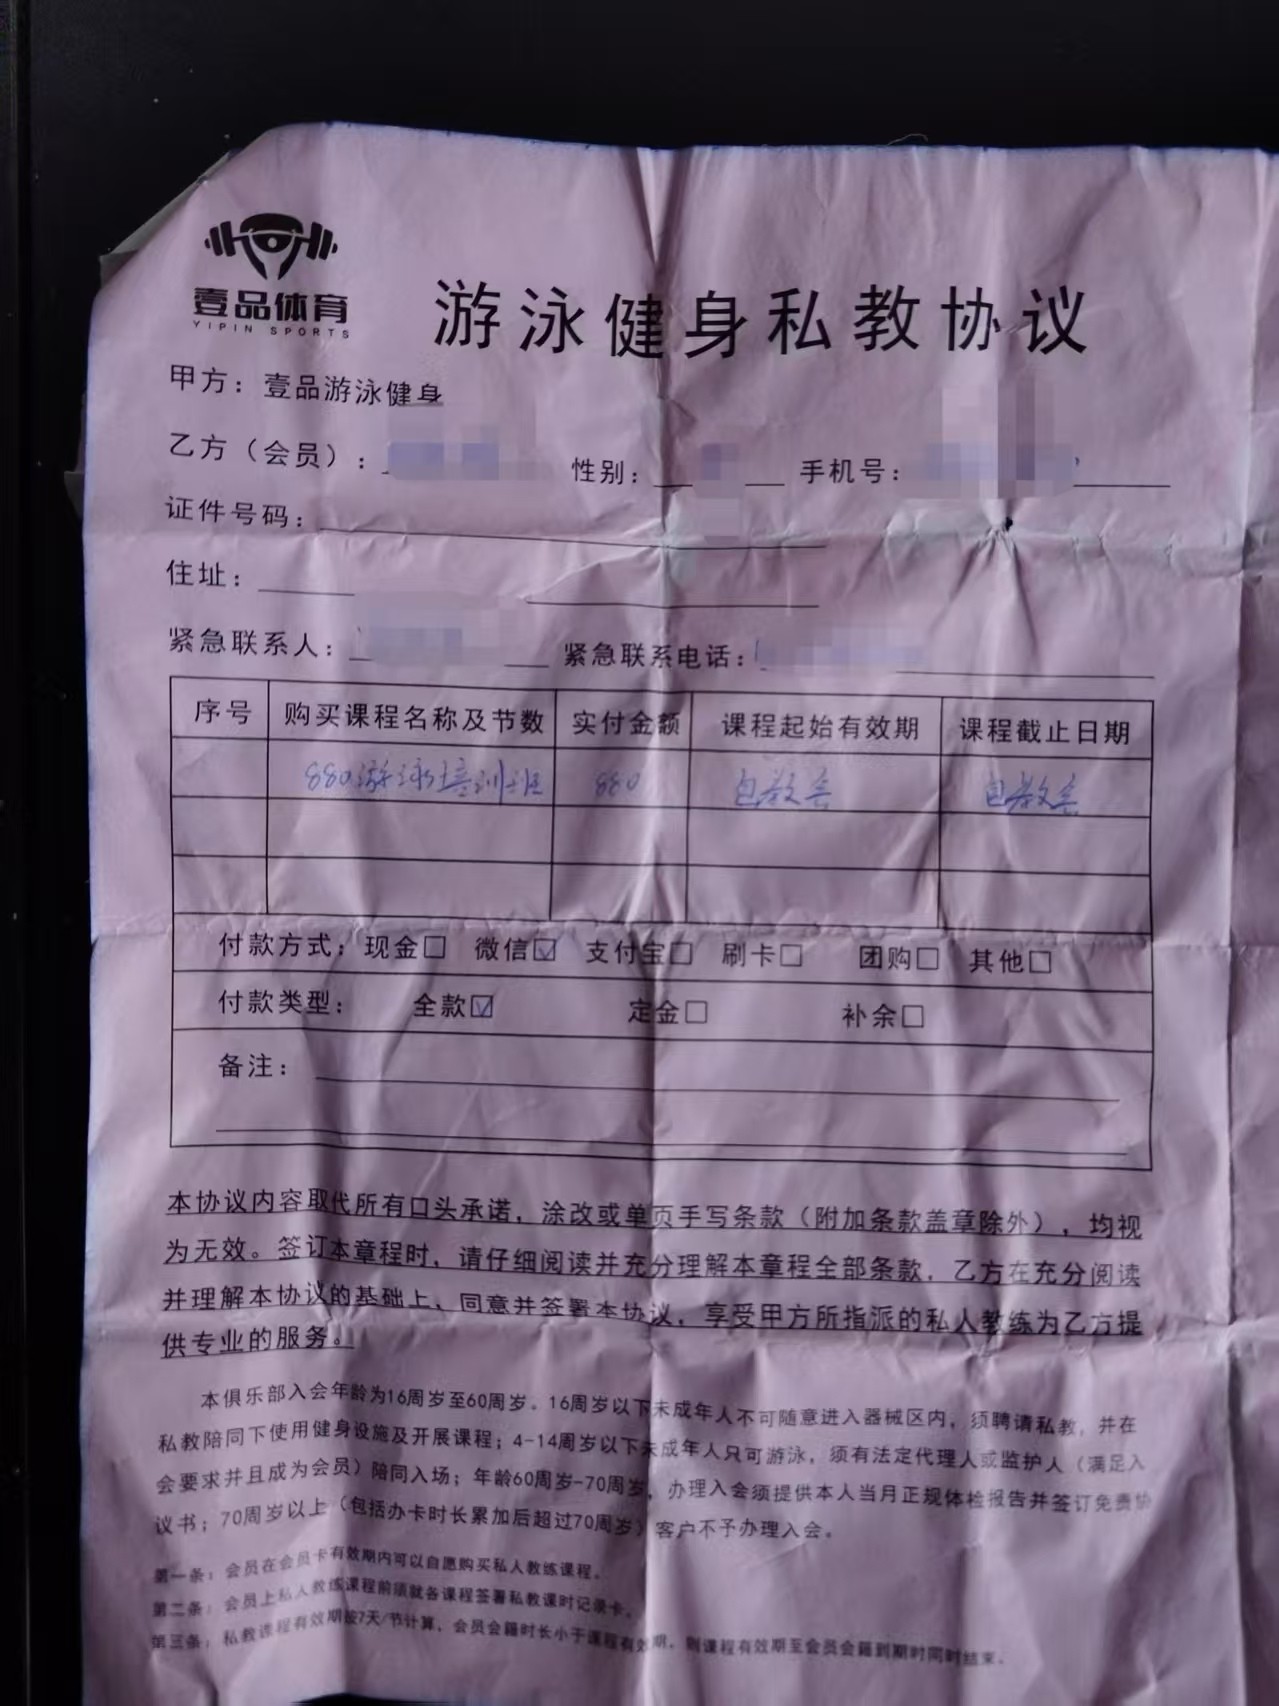 壹品体育
YIPIN SPORTS
游泳健身私教协议
甲方：壹品游泳健身
乙方（会员）： 性别： 手机号：
证件号码：
住址：
紧急联系人： 紧急联系电话：
序号 购买课程名称及节数 实付金额 课程起始有效期 课程截止日期
880游泳培训班 880 包教会 包教会
付款方式：现金□ 微信☑ 支付宝□ 刷卡□ 团购□ 其他□
付款类型： 全款☑ 定金□ 补余□
备注：
本协议内容取代所有口头承诺，涂改或单页手写条款（附加条款盖章除外），均视
为无效。签订本章程时，请仔细阅读并充分理解本章程全部条款，乙方在充分阅读
并理解本协议的基础上，同意并签署本协议，享受甲方所指派的私人教练为乙方提
供专业的服务。
本俱乐部入会年龄为16周岁至60周岁。16周岁以下未成年人不可随意进入器械区内，须聘请私教，并在
私教陪同下使用健身设施及开展课程；4-14周岁以下未成年人只可游泳，须有法定代理人或监护人（满足入
会要求并且成为会员）陪同入场；年龄60周岁-70周岁，办理入会须提供本人当月正规体检报告并签订免责协
议书；70周岁以上（包括办卡时长累加后超过70周岁）客户不予办理入会。
第一条：会员在会员卡有效期内可以自愿购买私人教练课程。
第二条：会员上私人教练课程前须就各课程签署私教课时记录卡。
第三条：私教课程有效期按7天/节计算，会员会籍时长小于课程有效期，则课程有效期至会员会籍到期时同时结束。